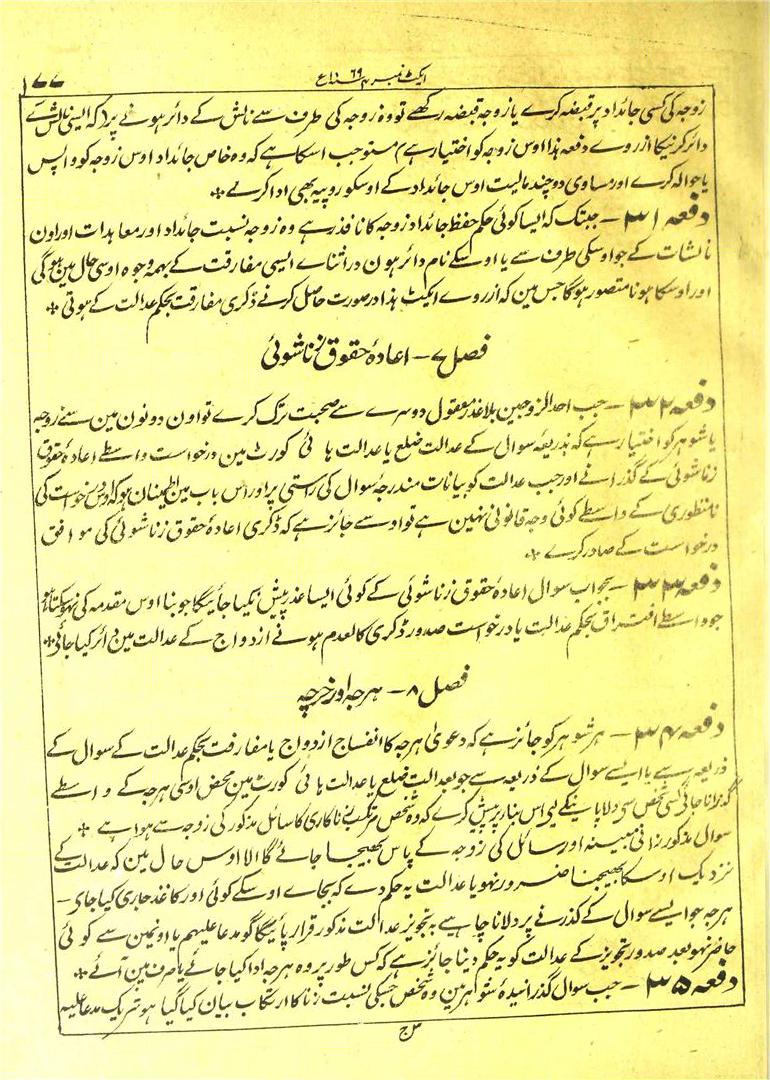 ایکٹ نمبر ۴ سنہ ۱۸۶۹ع
۱۷۷
زوجہ کی کسی جائداد پر قبضہ کرے یا زوجہ قبضہ رکھے تو وہ زوجہ کی طرف سے نالش کے دائر ہونے پر (کہ ایسی نالش کے
دائر کرنیکا ازروے دفعہ ہذا اوس زوجہ کو اختیار ہے) مستوجب اسکا ہے کہ وہ خاص جائداد اوس زوجہ کو واپس
یا حوالہ کرے اور مساوی دوچند مالیت اوس جائداد کے اوسکو روپیہ بھی ادا کرے *
دفعہ ۳۱ – جبتک کہ ایسا کوئی حکم حفظ جائداد زوجہ کا نافذ رہے وہ زوجہ نسبت جائداد اور معاہدات اور اون
نالشات کے جو اوسکی طرف سے یا اوسکے نام دائر ہون دراثناے ایسی مفارقت کے بہمہ وجوہ اوسی حال مین ہوگی
اور اوسکا ہونا متصور ہوگا جس مین کہ ازروے ایکٹ ہذا درصورت حاصل کرنے ڈگری مفارقت بحکم عدالت کے ہوتی *
فصل ۷ – اعادۂ حقوق زناشوئی
دفعہ ۳۲ – جب احد الزوجین بلا عذر معقول دوسرے سے صحبت ترک کرے تو اون دونون مین سے زوجہ
یا شوہر کو اختیار ہے کہ بذریعہ سوال کے عدالت ضلع یا عدالت ہائی کورٹ مین درخواست واسطے اعادۂ حقوق
زناشوئی کے گذرانے اور جب عدالت کو بیانات مندرجہ سوال کی راستی پر اور اس باب مین اطمینان ہو کہ اوس درخواست کی
نامنظوری کے واسطے کوئی وجہ قانونی نہین ہے تو اوسے جائز ہے کہ ڈگری اعادۂ حقوق زناشوئی کی موافق
درخواست کے صادر کرے *
دفعہ ۳۳ – بجواب سوال اعادۂ حقوق زناشوئی کے کوئی ایسا عذر پیش نکیا جائیگا جو بنا اوس مقدمہ کی نہو سکتا ہو
جو واسطے افتراق بحکم عدالت یا درخواست صدور ڈگری کالعدم ہونے ازدواج کے عدالت مین دائر کیا جائے *
فصل ۸ – ہرجہ اور خرچہ
دفعہ ۳۴ – ہر شوہر کو جائز ہے کہ دعویٰ ہرجہ کا انفساخ ازدواج یا مفارقت بحکم عدالت کے سوال کے
ذریعہ سے یا ایسے سوال کے ذریعہ سے جو بعدالت ضلع یا عدالت ہائی کورٹ مین محض اوسی ہرجہ کے واسطے
گذرانا جائے کسی شخص سے دلا پانیکے لیے اس بنا پر پیش کرے کہ وہ شخص مرتکب زناکاری کا سائل مذکور کی زوجہ سے ہوا ہے *
سوال مذکور زانی مبینہ اور سائل کی زوجہ کے پاس بھیجا جائے گا الا اوس حال مین کہ عدالت کے
نزدیک اوسکا بھیجنا ضرور نہو یا عدالت یہ حکم دے کہ بجاے اوسکے کوئی اور کاغذ جاری کیا جاے –
ہرجہ جو ایسے سوال کے گذرنے پر دلانا چاہیے بہ تجویز عدالت مذکور قرار پائیگا گو مدعا علیہم یا اونمین سے کوئی
حاضر نہو بعد صدور تجویز کے عدالت کو یہ حکم دینا جائز ہے کہ کس طور پر وہ ہرجہ ادا کیا جائے یا صرف مین آئے *
دفعہ ۳۵ – جب سوال گذرانیدۂ شوہر مین وہ شخص جسکی نسبت زنا کا ارتکاب بیان کیا گیا ہو شریک مدعا علیہ